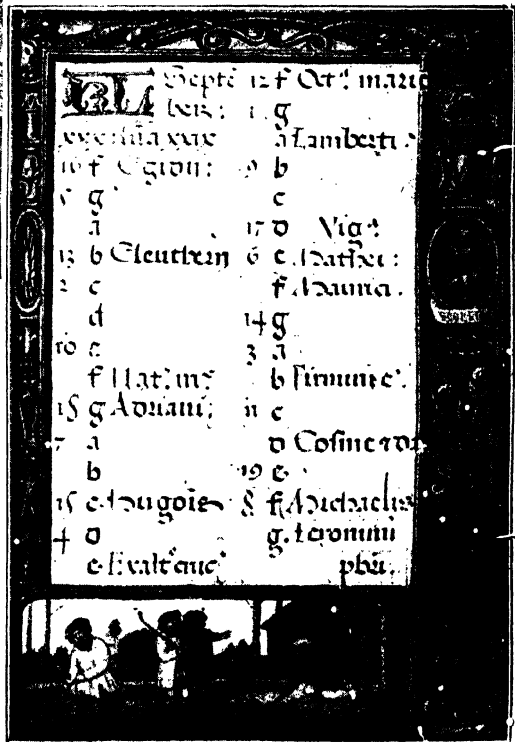 KL Septē
ber:
xxx luna xxix
16 f Egidii:
5 g
a
13 b Eleutherii
2 c
d
10 e
f Nat: m
g Adriani;
7 a
b
15 c Hugois
4 d
e Exalt crucꝰ
12 f Octꝰ marie
1 g
a Lamberti
9 b
c
17 d Vigꝰ
6 e Mathei:
f Maurici.
14 g
3 a
b Firmini e.
11 c
d Cosme
19 e
8 f Michaelis
g. Ieronimi
pbri.